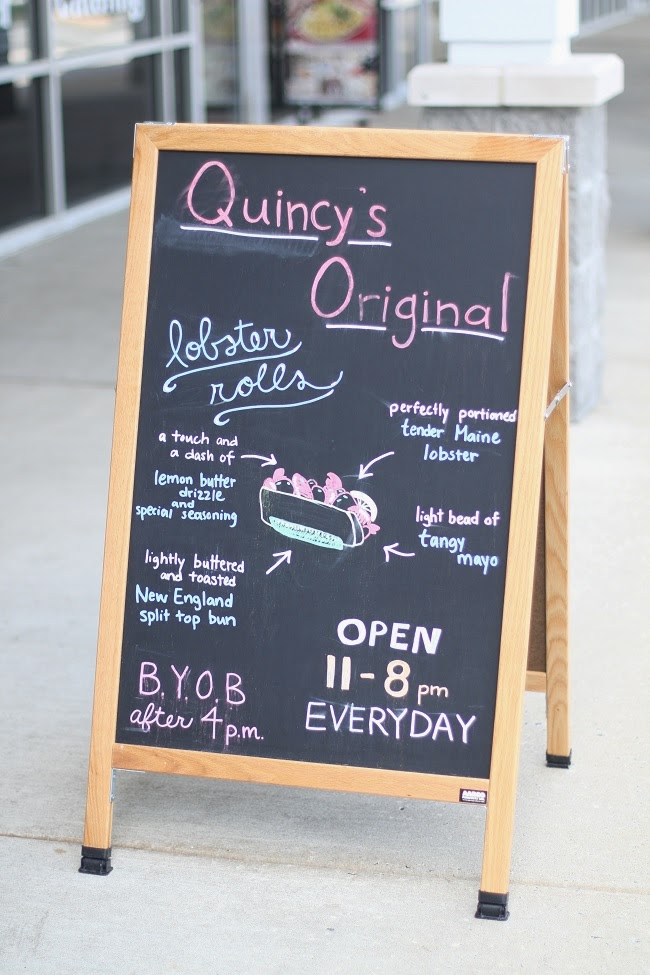 Quincy's
Original
lobster
rolls
a touch and
a dash of
lemon butter
drizzle
and
special seasoning
perfectly portioned
tender Maine
lobster
light bead of
tangy
mayo
lightly buttered
and toasted
New England
split top bun
B.Y.O.B
after 4 p.m.
OPEN
11-8 pm
EVERYDAY